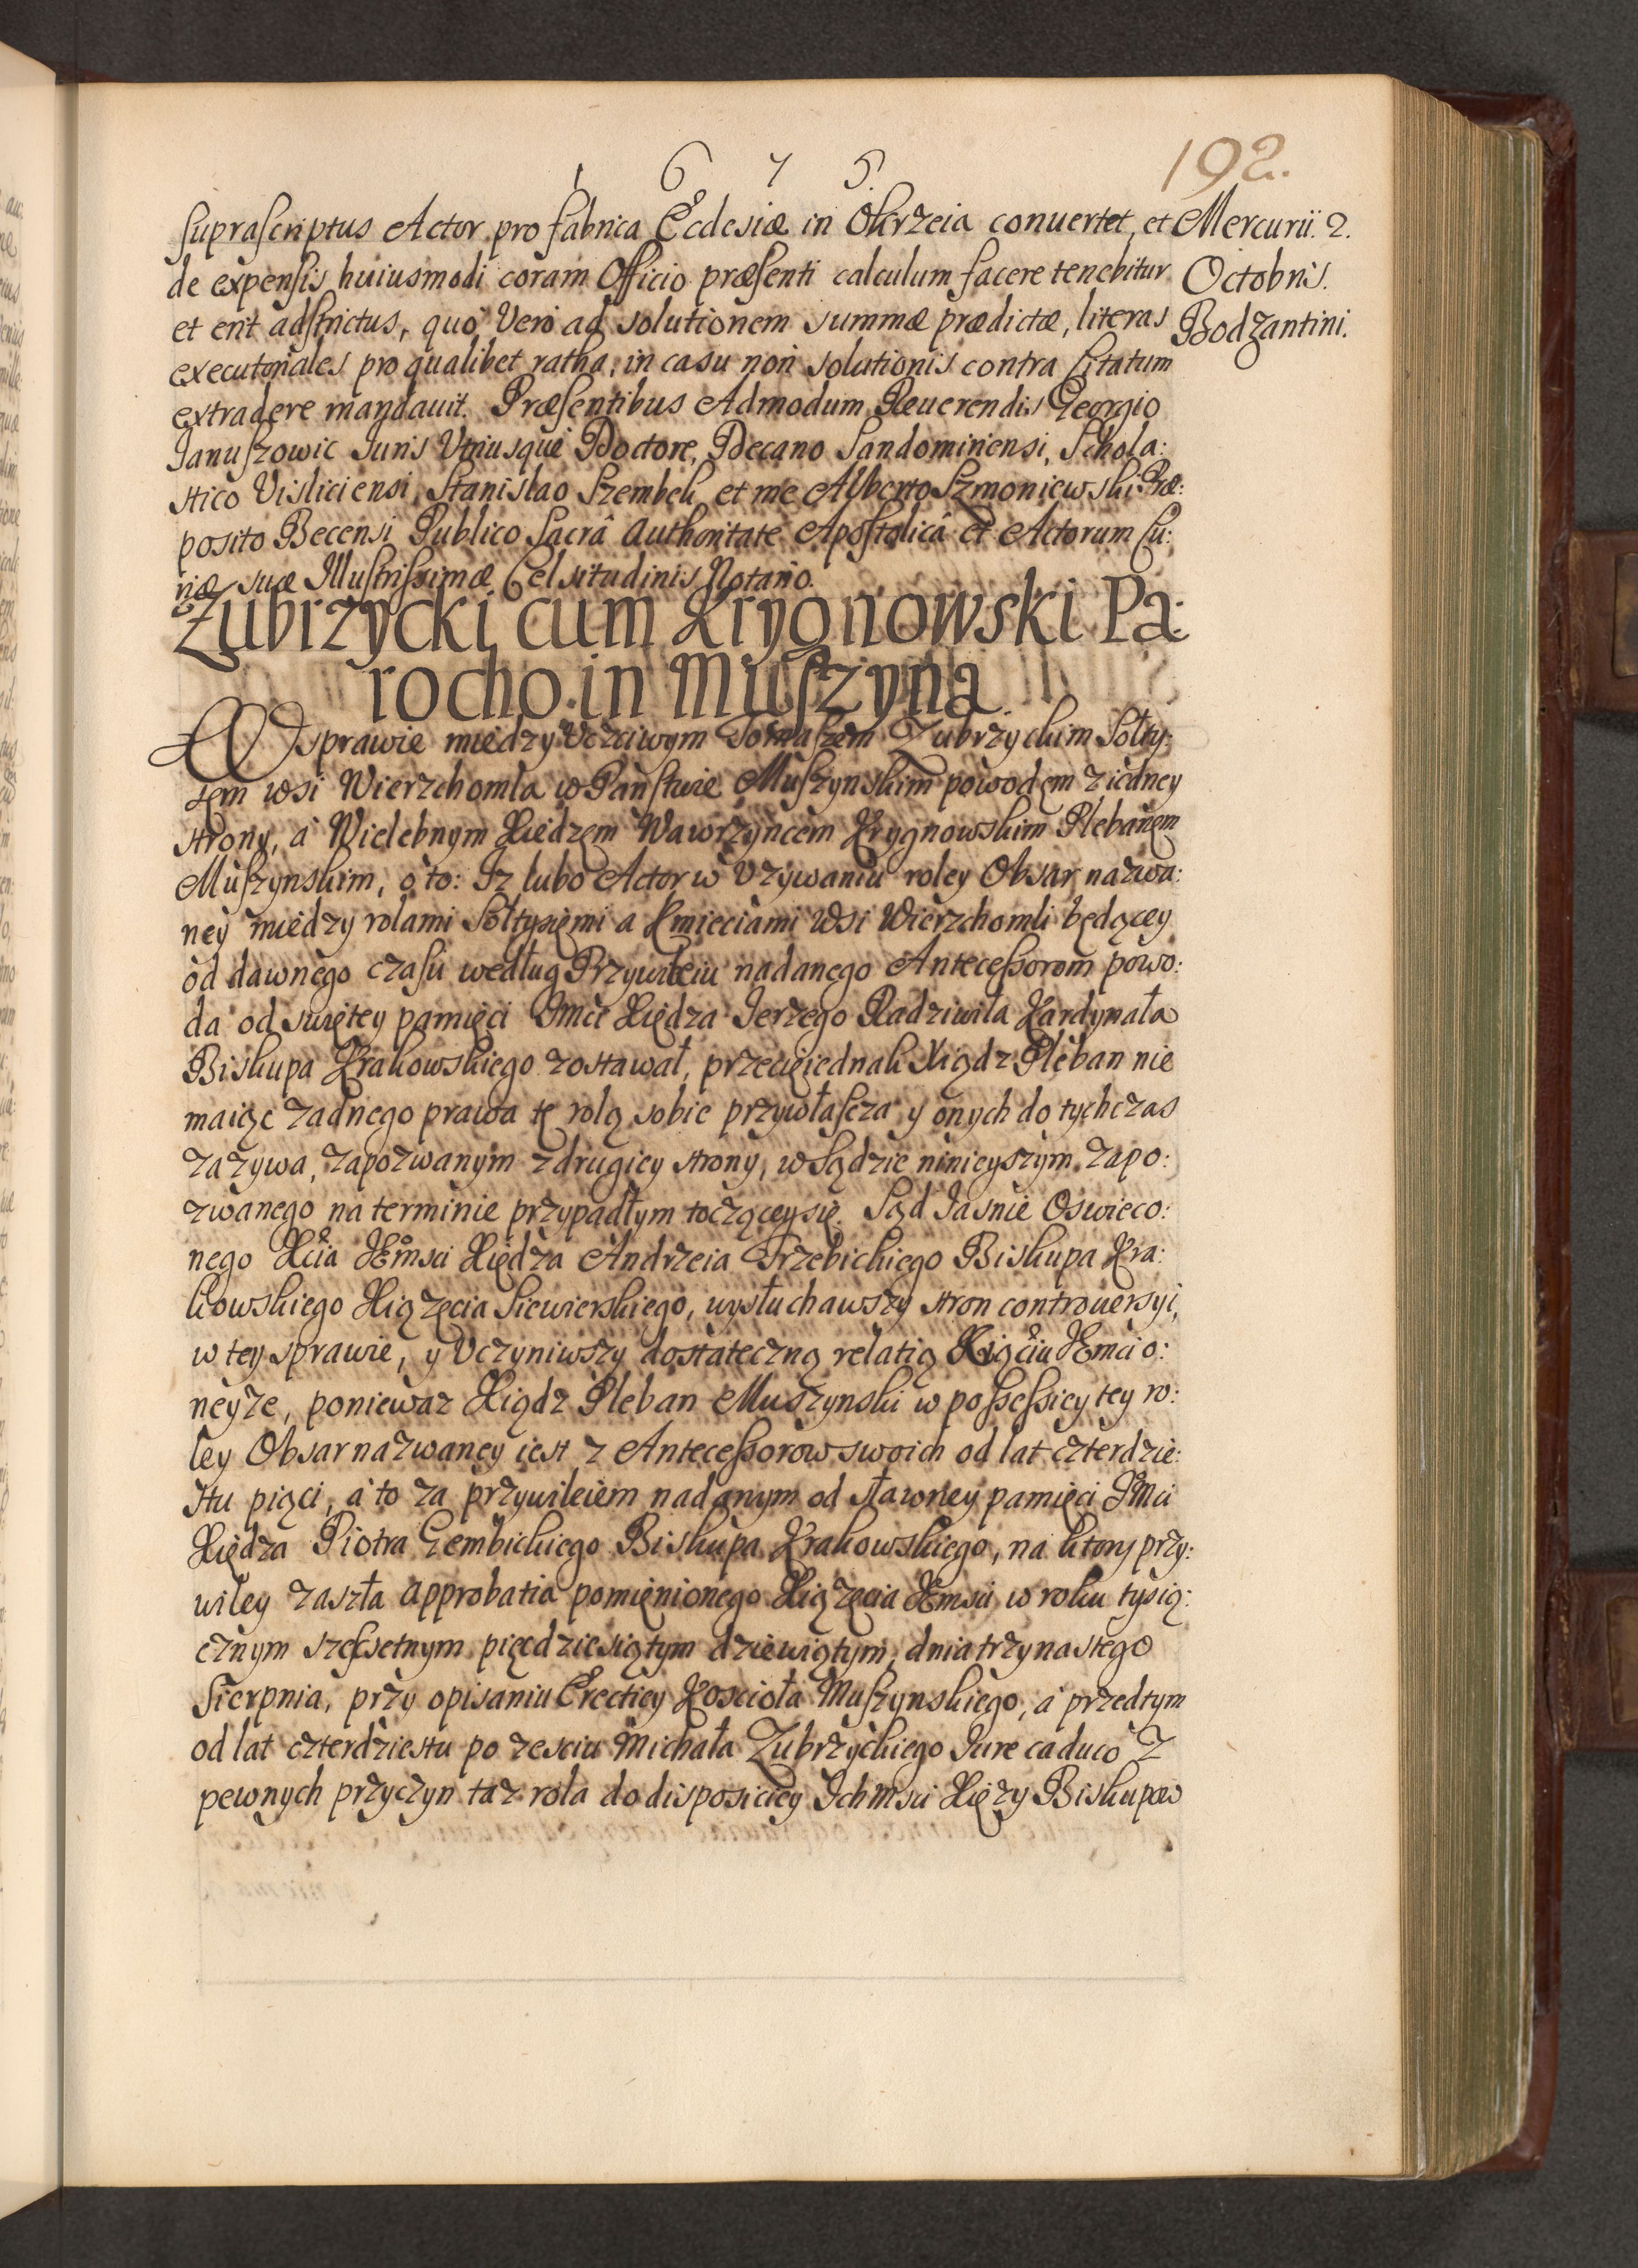 1 6 7 5.
192.
supraſcriptus Actor pro fabrica Ecclesiæ in Okrzeia conuertet, et
de expenſis huiusmodi coram Officio præſenti calculum facere tenebitur
et erit adſtrictus, quo Vero ad solutionem summæ prædictæ, literas
executoriales pro qualibet ratha, in casu non solutionis contra Citatum
extradere mandauit. Præſentibus Admodum Reuerendis Georgio
Januſzowic Juris Vtriusque Doctore, Decano Sandomiriensi, Schola:
stico Visliciensi, Stanislao Szembek, et me Alberto Szmoniewski Præ:
posito Becensi Publico Sacrâ Authoritate Apoſtolicâ et Actorum Cu:
riæ suæ Illuſtriſsimæ Celsitudinis Notario.
Mercurii. 2.
Octobris.
Bodzantini.
Zubrzycki cum Krygnowski Pa:
rocho in Muſzyna.
W sprawie miedzy Vczciwym Tomaſzem Zubrzyckim Sołty:
sem wsi Wierzchomla w Pańſtwie Muſzynskim powodem z iedney
strony, a Wielebnym Xiedzem Wawrzyncem Krygnowskim Plebanem
Muſzynskim, o to: Iz lubo Actor w Vzywaniu roley Obsar nazwa:
ney miedzy rolami Sołtysiemi a Kmieciami Wsi Wierzchomli będącey
od dawnego czaſu według Przywileiu nadanego Anteceſsorom powo:
da od swiętey pamięci Jmci Xiędza Jerzego Radziwiła Kardynała
Biskupa Krakowskiego zostawał, przecięiednak Xiądz Pleban nie
maiąc zadnego prawa tę rolą sobie przywłaſcza y onych do tychczas
zazywa, zapozwanym z drugiey strony, w Sądzie ninieyszym zapo:
zwanego na terminie przypadłym toczącey się. Sąd Jasnie Oswieco:
nego Xcia JEmsci Xiędza Andrzeia Trzebickiego Biskupa Kra:
kowskiego Xiązęcia Siewierskiego, wysłuchawszy stron controuersyi,
w tey sprawie, y Vczyniwszy dostateczną relatią Xiąciu JEmci o:
neyze, poniewaz Xiądz Pleban Muszynski w poſseſsiey tey ro:
ley Obsar nazwaney iest z Anteceſsorow swoich od lat czterdzie:
stu piąci, a to za przywileiem nadanym od sławney pamięci Jmci
Xiędza Piotra Gembickiego Biskupa Krakowskiego, na ktory przy:
wiley zaszła approbatia pomienionego Xiązęcia JEmsci w roku tysią:
cznym szeſcsetnym pięcdziesiątym dziewiątym, dnia trzynastego
Sierpnia, przy opisaniu Erectiey Kosciola Muſzynskiego, a przedtym
od lat czterdziestu po zesciu Michała Zubrzyckiego Jure caduco z
pewnych przyczyn taz rola do disposiciey Ichmsci Xięzy Biskupow